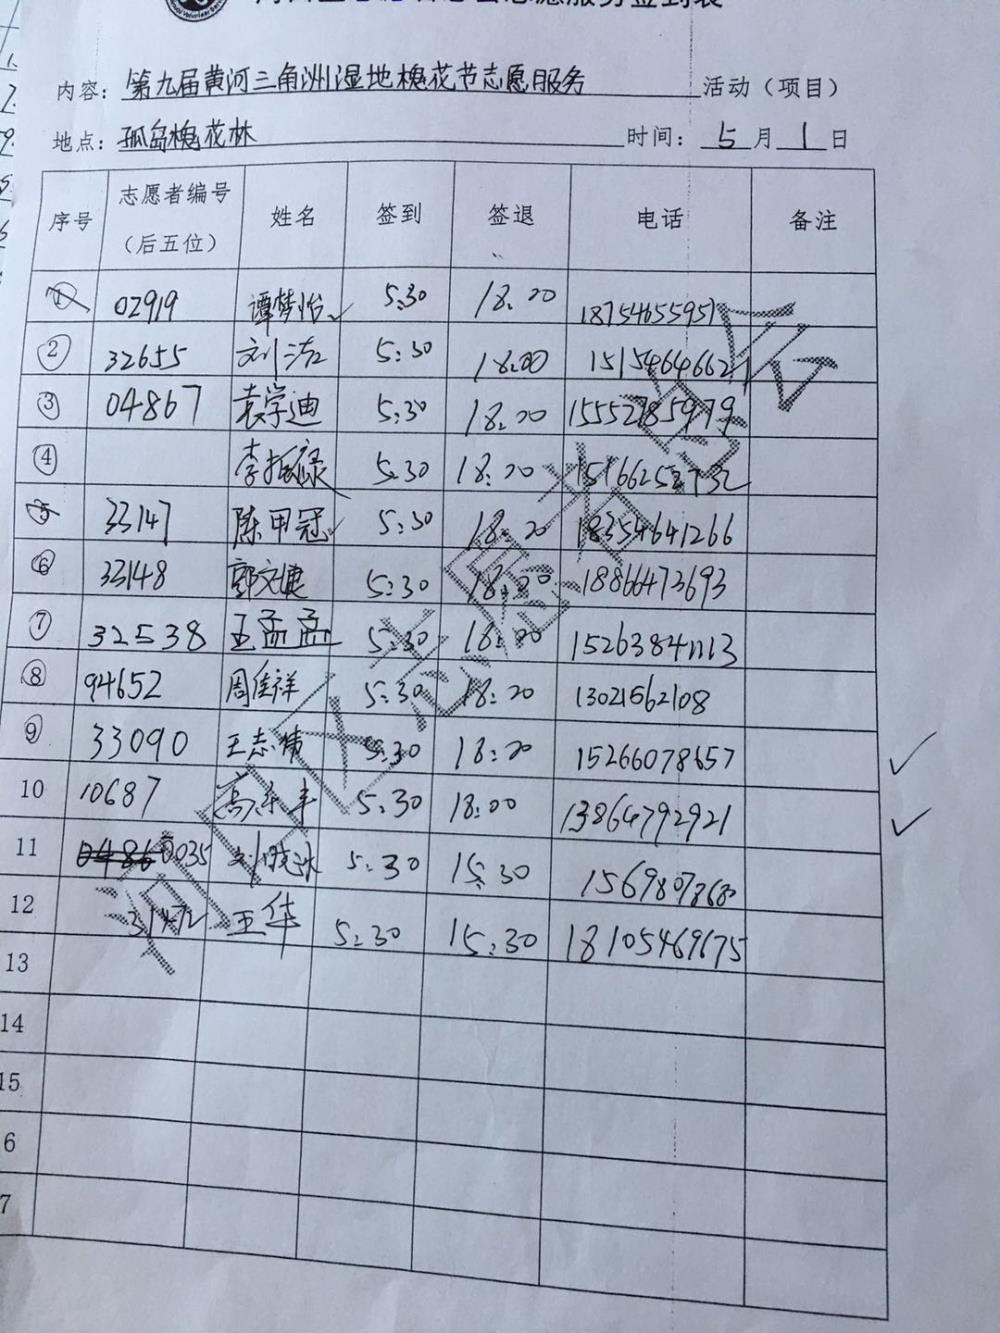 内容：第九届黄河三角洲湿地槐花节志愿服务 活动（项目）
地点：孤岛槐花林 时间：5月1日
序号 志愿者编号（后五位） 姓名 签到 签退 电话 备注
① 02919 谭梦怡 5:30 18:00 18754655957
② 32655 刘洁 5:30 18:00 1515464662
③ 04867 袁学迪 5:30 18:00 15552785979
④ 李振禄 5:30 18:00
5 33147 陈甲冠 5:30 18:00 18354641266
⑥ 33148 郭文健 5:30 18:00 18866473693
⑦ 32538 王孟孟 5:30 18:00
⑧ 94652 周佳祥 5:30 18:00 13021562108
⑨ 33090 王志倩 5:30 18:00 15266078657
10 10687 5:30 18:00 13864792921
11 0035 刘晓冰 5:30 15:30
12 王华 5:30 15:30 18105469675
13
14
15
6
7